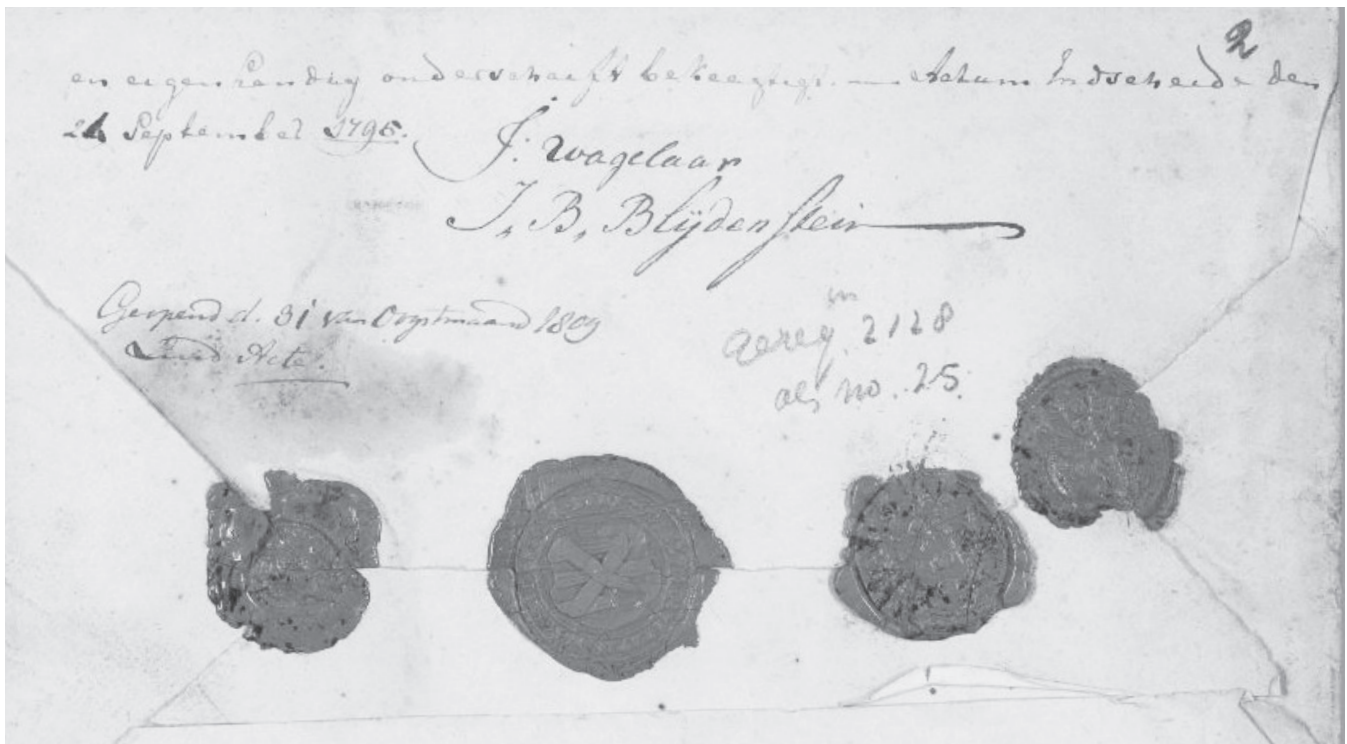 2
en eigenhandig onderschrift bekragtigt. — Actum Endschede den
24 September 1795.
J: Wagelaar
J. B. Blijdenstein
Geopend d. 31 van Oogstmaand 1809
Acte.
in
gereg. 2128
als no. 25.